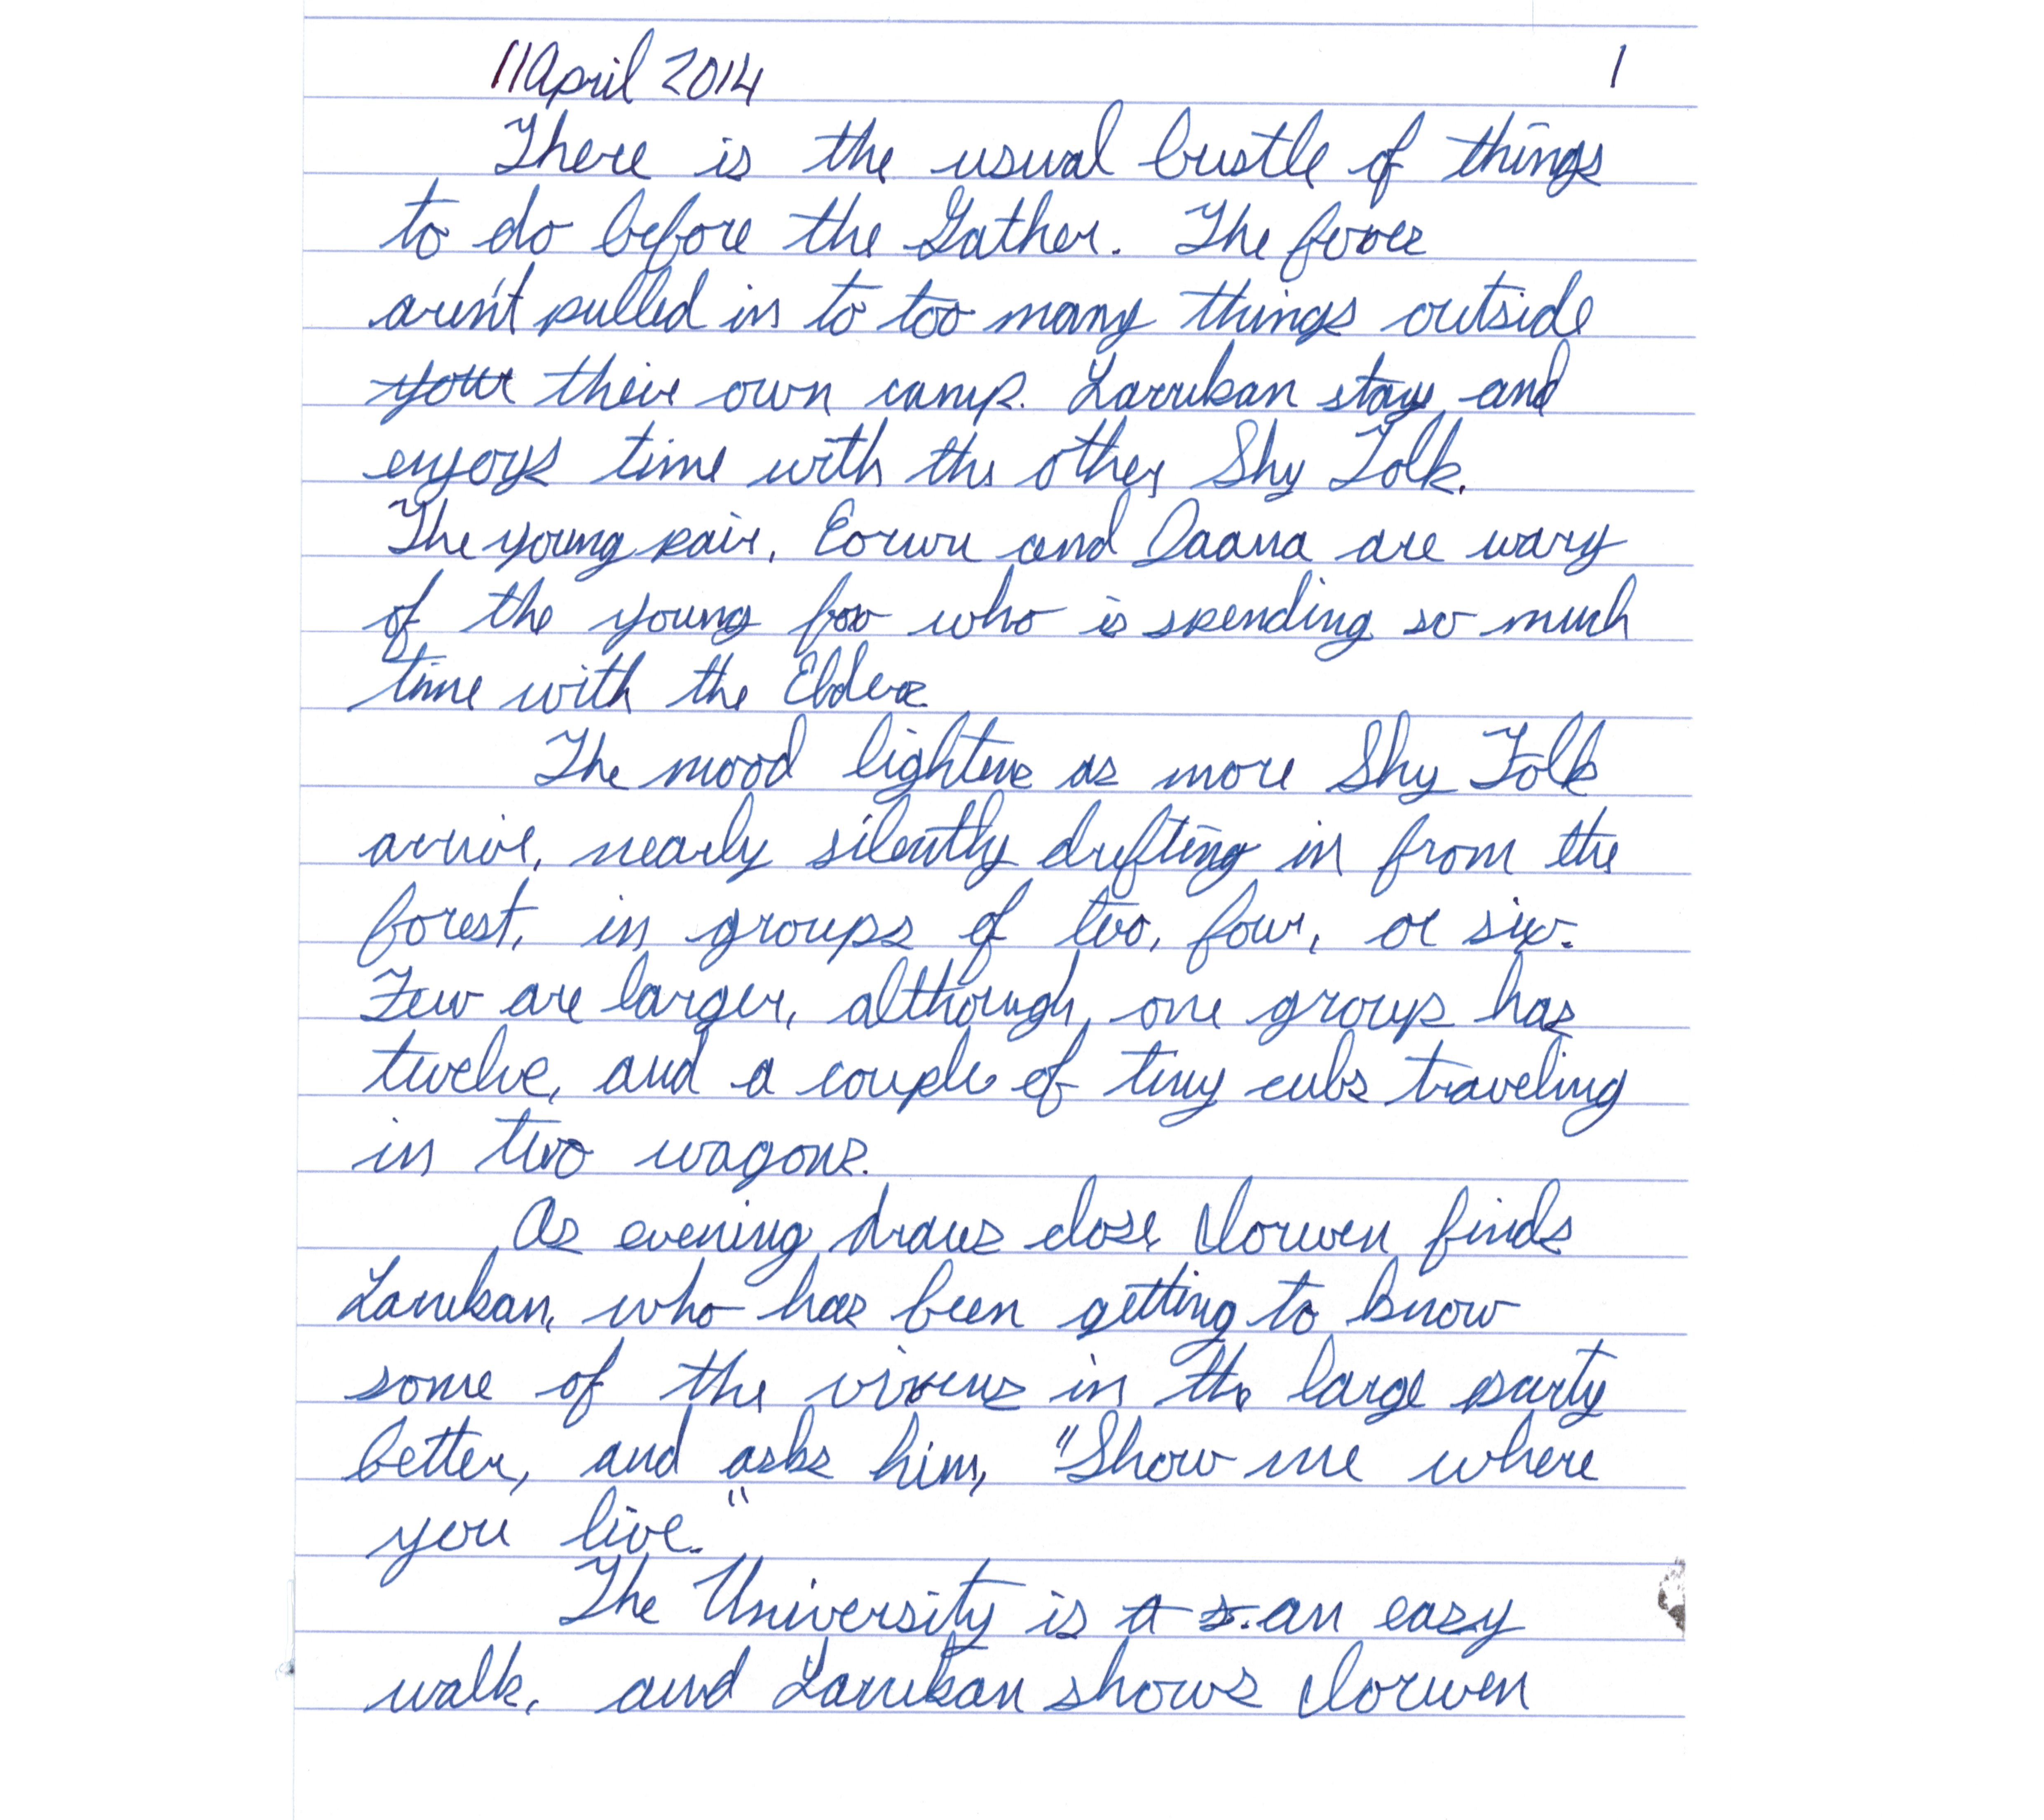 11 April 2014 1
There is the usual bustle of things
to do before the Gather. The foxes
aren't pulled in to too many things outside
your their own camp. Larukan stays and
enjoys time with the other Shy Folk.
The young pair, Eorwu and Daana are wary
of the young fox who is spending so much
time with the Elders.
The mood lightens as more Shy Folk
arrive, nearly silently drifting in from the
forest, in groups of two, four, or six.
Few are larger, although one group has
twelve, and a couple of tiny cubs traveling
in two wagons.
As evening draws close Clorwen finds
Larukan, who has been getting to know
some of the vixens in the large party
better, and asks him, "Show me where
you live."
The University is a s. an easy
walk, and Larukan shows Clorwen